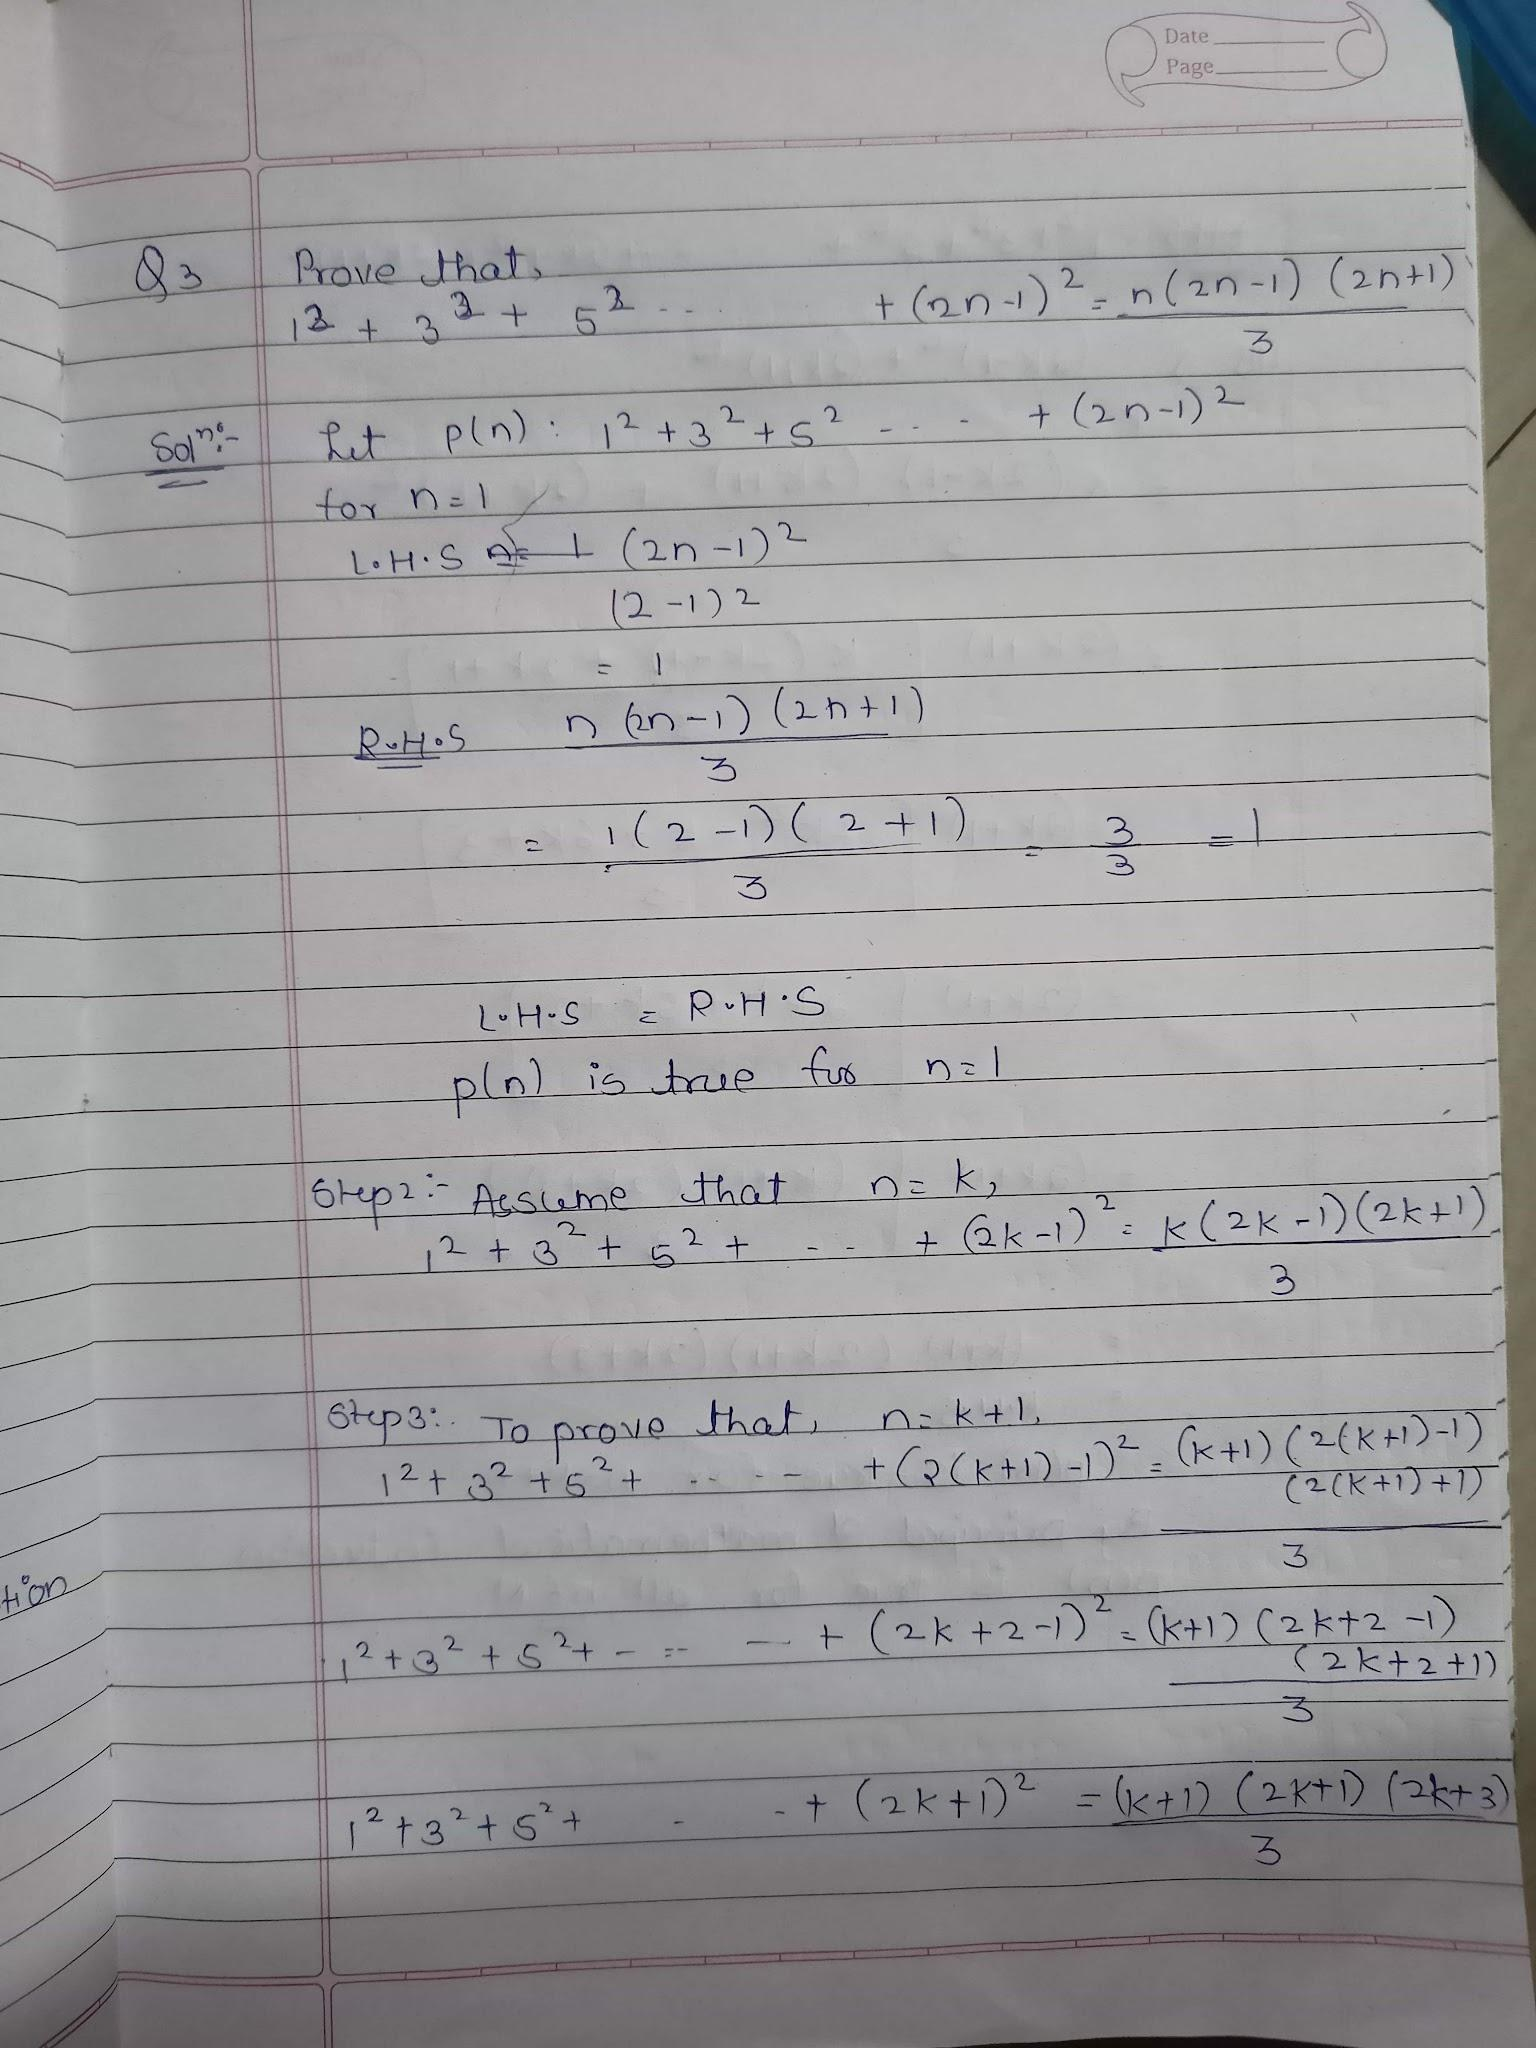 Date
Page
Q3 Prove that,
1² + 3² + 5² ... + (2n-1)² = n(2n-1) (2n+1)
3
Solⁿ:- Let p(n) : 1² + 3² + 5² - - - + (2n-1)²
for n=1
L.H.S (2n-1)²
(2-1)2
= 1
R.H.S n (2n-1) (2n+1)
3
= 1(2-1)( 2+1) = 3 = 1
3 3
L.H.S = R.H.S
p(n) is true for n=1
Step2:- Assume that n=k,
1² + 3² + 5² + - - + (2k-1)² = k(2k-1)(2k+1)
3
Step3:- To prove that, n=k+1,
1² + 3² + 5² + ..... + (2(k+1)-1)² = (k+1)(2(k+1)-1)
(2(k+1)+1)
3
tion
1² + 3² + 5² + - -- -- + (2k+2-1)² = (k+1)(2k+2-1)
(2k+2+1)
3
1² + 3² + 5² + - - + (2k+1)² = (k+1) (2k+1) (2k+3)
3